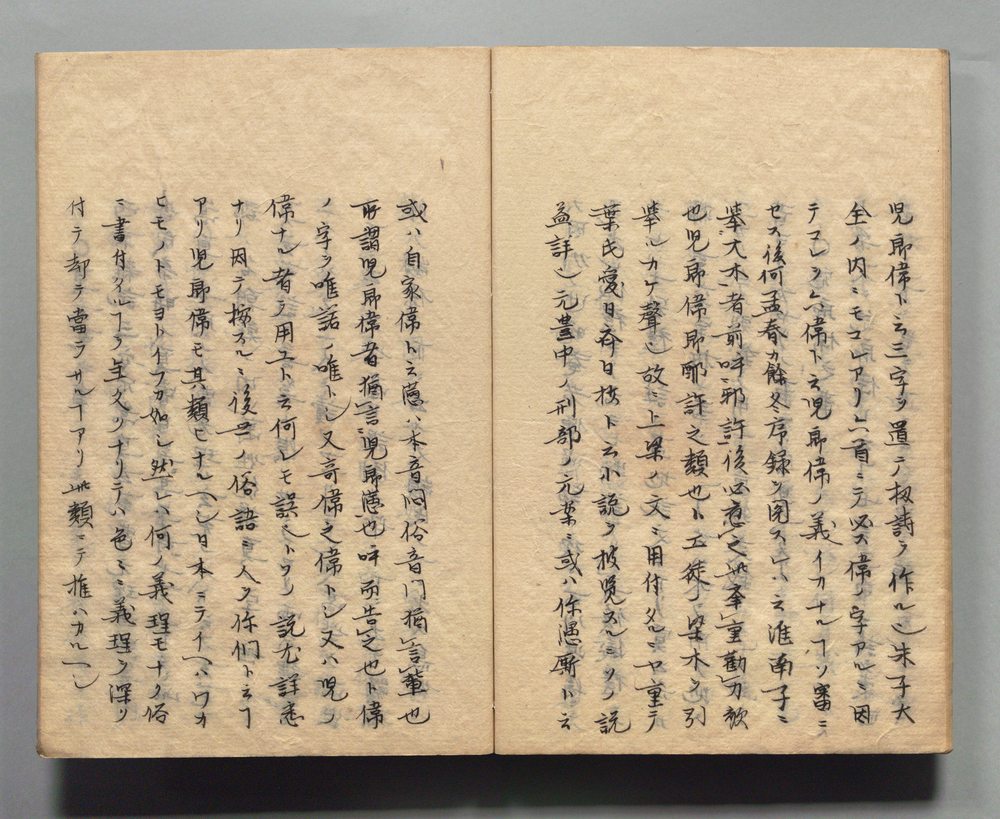 児郎偉ト云三字ヲ置テ扨詩ヲ作ル也朱子大
全ノ内ニモコレアリ六首ニテ必ス偉ノ字アルニ因
テコレヲ六偉ト云児郎偉ノ義イカナルフソ審ニ
セス後何孟春カ餘冬序録ヲ閲スルニ云淮南子ニ
挙大木者前呼邪許後必應之此挙重勧力歌
也児郎偉即邪許之類也ト工徒ノ梁木ヲ引
挙ルカケ聲也故ニ上梁ノ文ニ用付タルニヤ重テ
葉氏愛日斉日抄ト云小説ヲ披覧スルニソノ説
益詳也元豊中ノ刑部ノ元案ニ或ハ你懣厮ハ云
或ハ自家偉ト云懣ハ本音悶俗音门猶言輩也
所謂児郎偉者猶言児郎懣也呼而告之也ト偉
ノ字ヲ唯諾ノ唯トシ又奇偉之偉トシ又ハ児ノ
偉ナル者ヲ用ユト云何レモ誤ニトソノ説尤詳悉
ナリ因テ按スルニ後世ノ俗語ニ人ヲ你们ト云フ
アリ児郎偉モ其類ヒナルヘシ日本ニテイヘハワカ
ヒモノトモヨトイフカ如シ然レハ何ノ義理モナク俗
ニ書付タルフヲ至久クナリテハ色ミニ義理ヲ深ク
付テ却テ當ラサルフアリ此類ニテ推ハカルヘシ